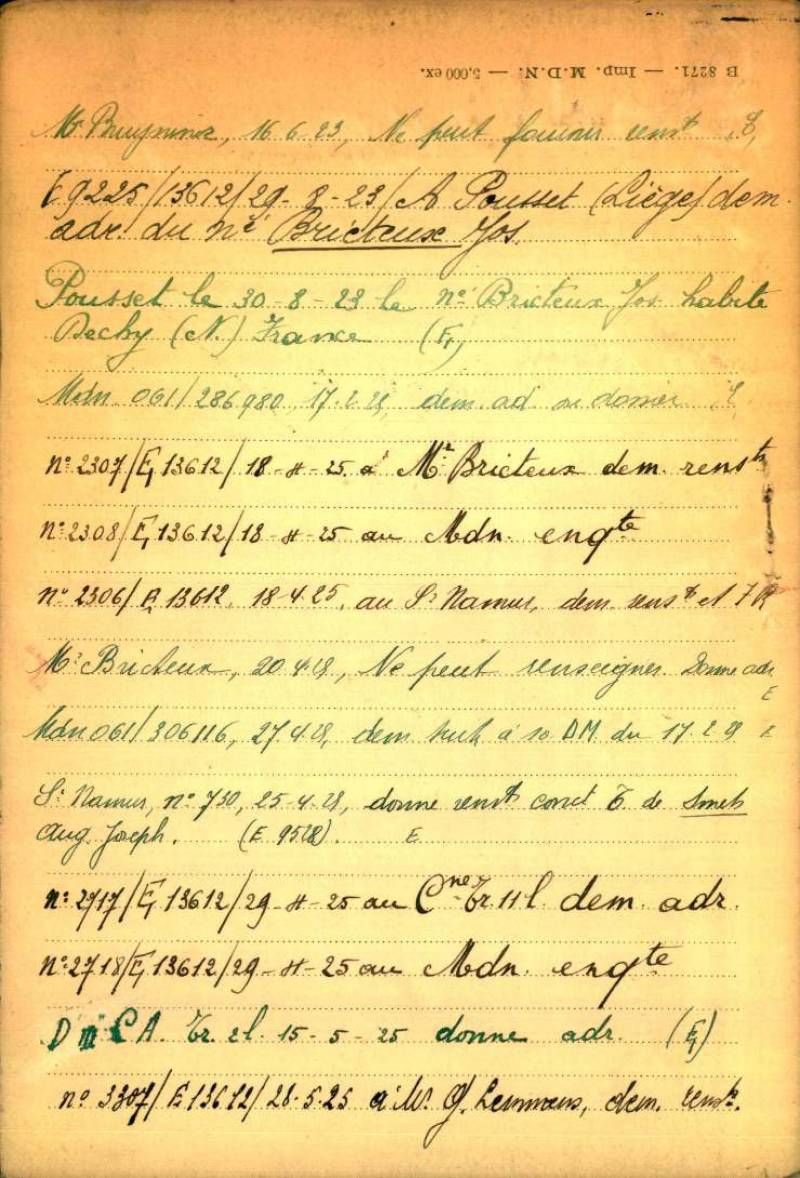 B 8271. — Imp. M.D.N. — 5,000 ex.
Mr Bruyninx, 16.6.23, Ne peut fournir renst E,
E 9225/13612/29-8-23/ A Pousset (Liège) dem.
adr. du né Bricteux Jos.
Pousset le 30-8-23 le né Bricteux Jos habite
Dechy (N.) France (E,)
Mdn 061/286980, 17.2.25, dem. ad dossier E,
n° 2307/E, 13612/18-4-25. à Mr Bricteux dem. rensts
n° 2308/E, 13612/18-4-25 au Mdn. enqte
n° 2306/E, 13612, 18.4.25, au St Namur, dem. renst et
Mr Bricteux, 20.4.25, Ne peut renseigner Donne adr
E
Mdn 061/306116, 27.4.25, dem à so DM du 17.2.25 E
St Namur, n° 730, 25-4-25, donne renst T. de Smets
Aug. Joseph. (E 9528). E
n° 2717/E, 13612/29-4-25 au Cne Tr. 11 l. dem. adr.
n° 2718/E, 13612/29-4-25 au Mdn. enqte
D C A. Tr. 2 l. 15-5-25 donne adr. (E,)
n° 3307/E 13612/28.5.25 à Mr G. Lemmens, dem. renst.